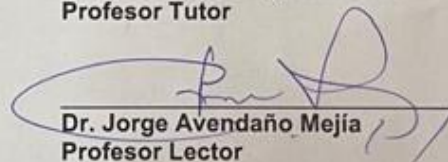 Profesor Tutor
Dr. Jorge Avendaño Mejía
Profesor Lector